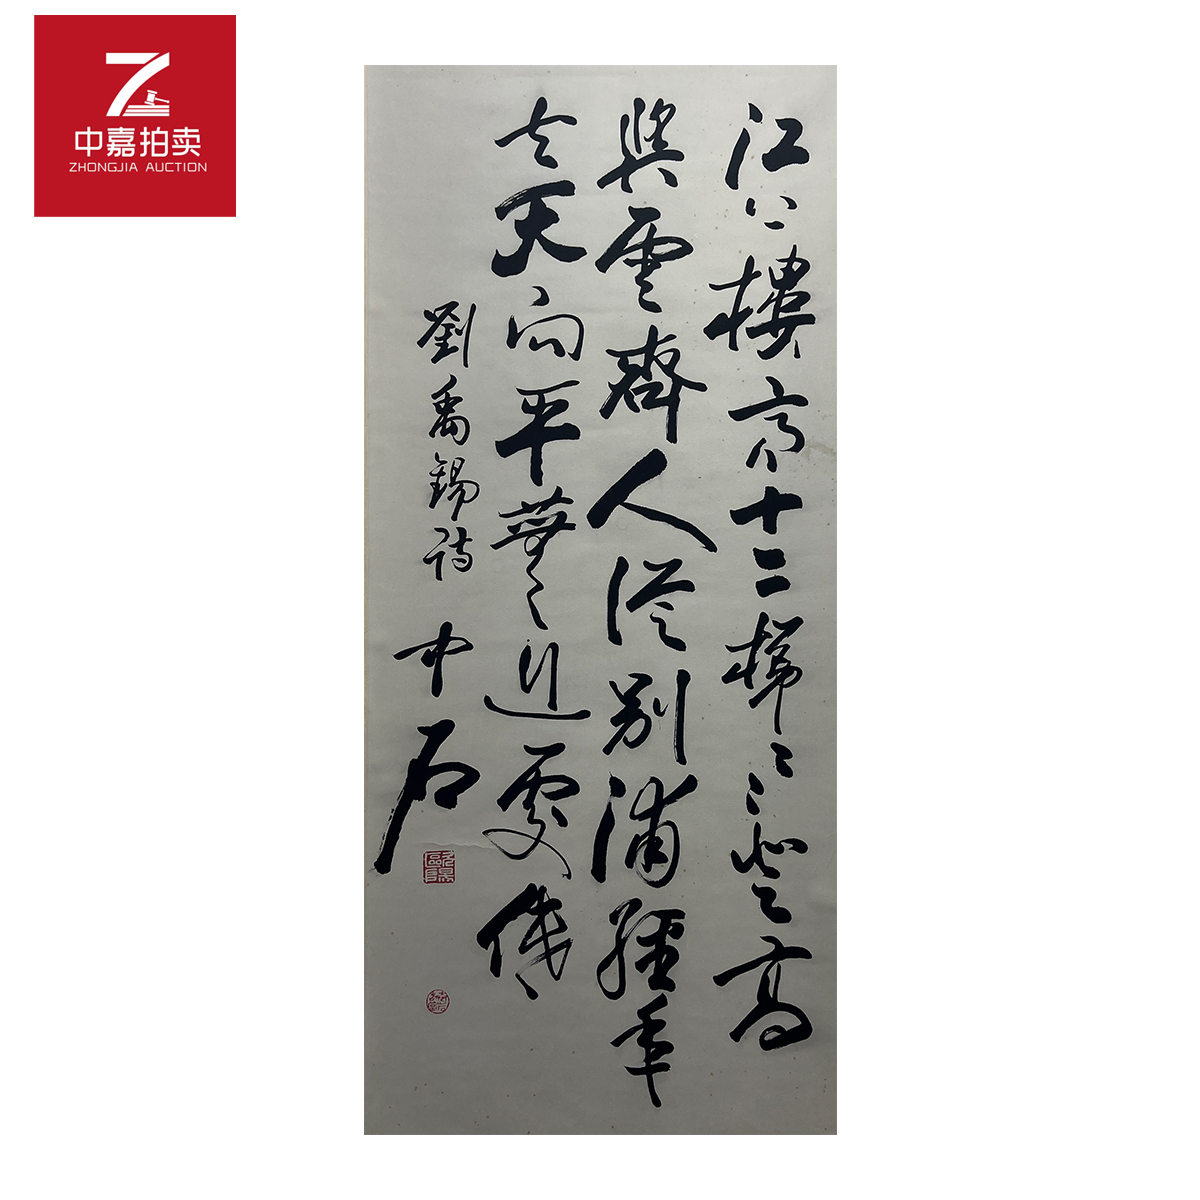 中嘉拍卖
ZHONGJIA AUCTION
江上樓高十二梯〻〻登高
與雲齊人從別浦經年
去天向平蕪近處低
劉禹錫詩 中石